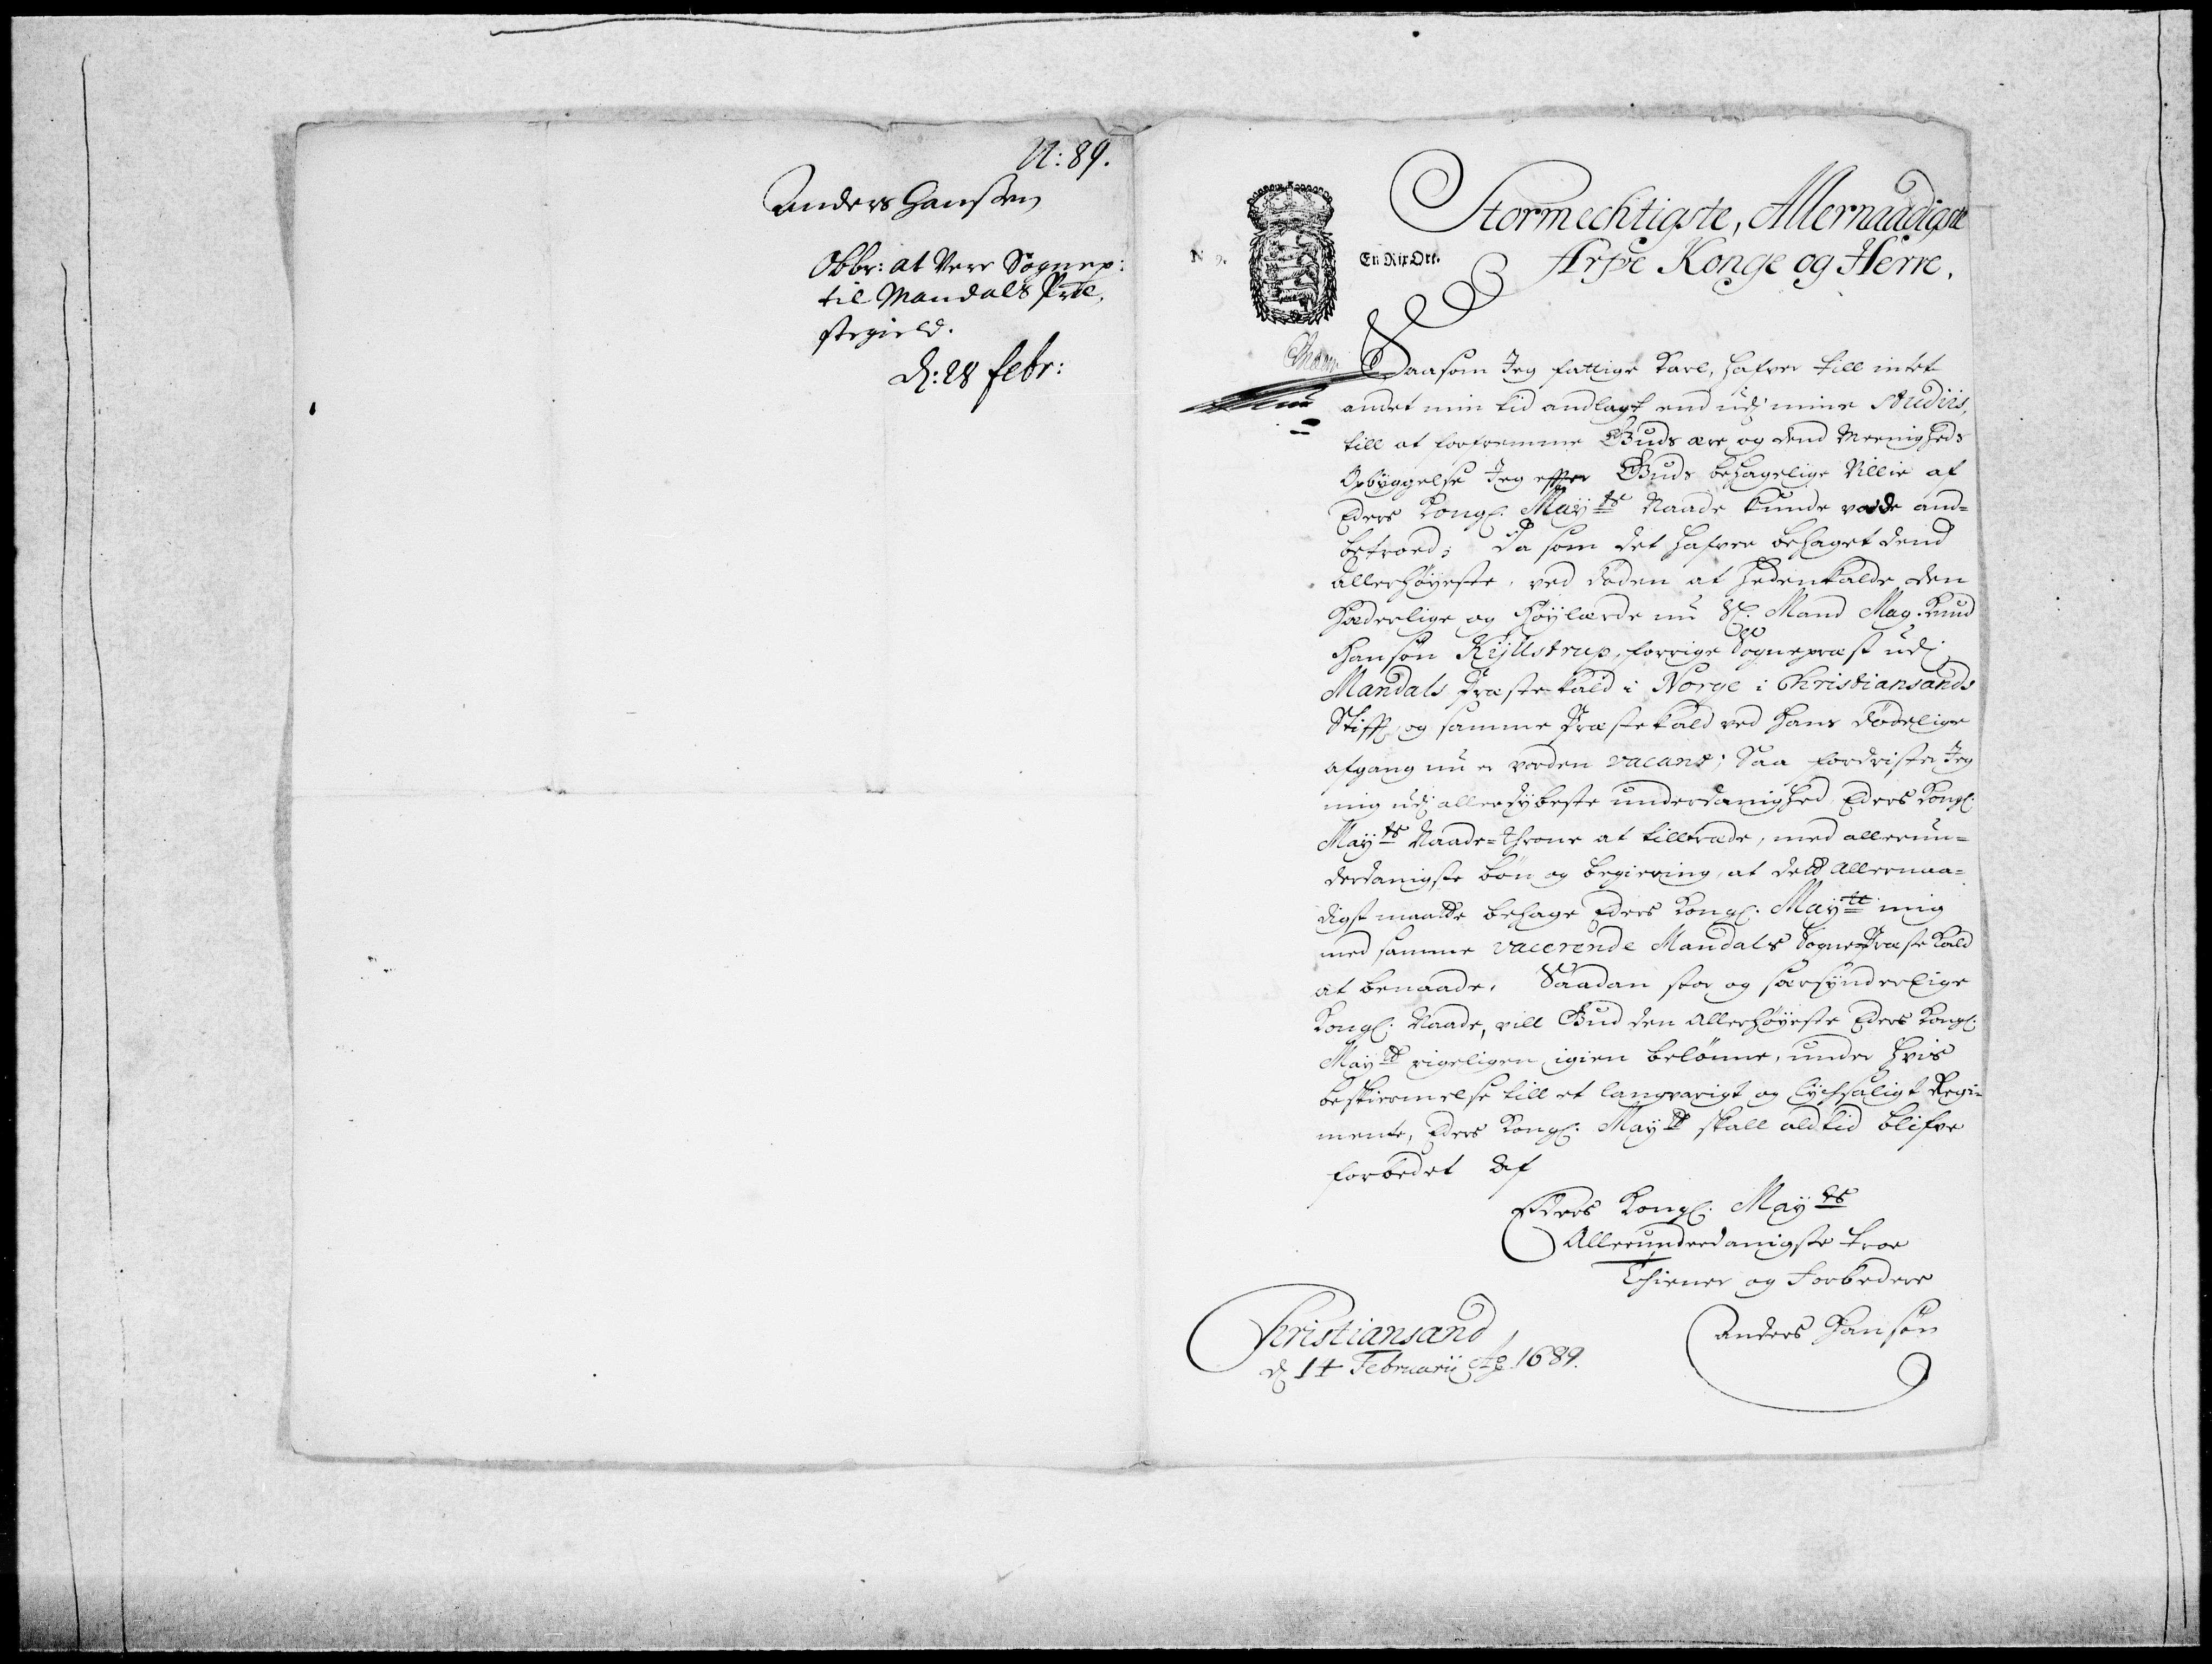 N: 89.
Anders Hanssen
Obbr: at Vere Sognep:
til Mandals Præ,
stegield.
d: 28 febr:
Stormechtigste, Allernaadigste
Arfve Konge og Herre.
En Rix Ort.
Saasom Jeg fattige Karl, hafver till intet
andet min tid andlagt end udj mine Studiis,
till at forfremme Guds ære og dend Meenigheds
Opbyggelse Jeg effter Guds behagelige Villie af
Eders Kongl. Mayts Naade kunde vorde and=
betroed; Da som det hafver behaget dend
Allerhøyeste, ved døden at hedenkalde den
Hæderlige og Høylærde nu Sl. Mand Mag. Knud
Hansøn Kyllstrup, forrige Sognepræst udj
Mandals Præstekald i Norge i Christiansands
Stifft, og samme Præstekald ved hans dødelige
afgang nu er vorden vacant; Saa fordrister Jeg
mig udj allerdybeste underdanighed Eders Kongl.
Mayts Naade=throne at tilltræde, med allerun=
derdanigste bøn og begiering, at dett Allernaa=
digst maatte behage Eders Kongl. Maytt mig
med samme vacerende Mandals Sogne-Præste Kald
at benaade. Saadan stor og særsynderlige
Kongl. Naade, vill Gud den Allerhøyeste Eders Kongl.
Maytt rigeligen igien belønne, under hvis
beskiermelse till et langvarigt og lychsaligt Regi=
mente, Eders Kongl. Maytt skall altid blifve
forbedet af
Eders Kongl. Mayts
Allerunderdanigste troe
Thiener og Forbedere
Anders Hansøn
Christiansand
d 14 Februarij Ao 1689.